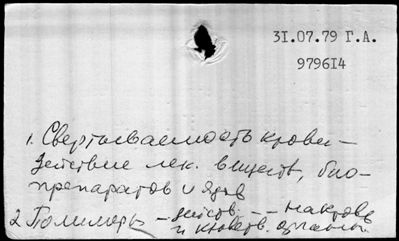 31.07.79 Г.А.
979614
1. Свертываемость крови -
действие лек. веществ, био-
препаратов и ядов
2. Полимеры - действ. - - на кровь
и кроветв. органы.